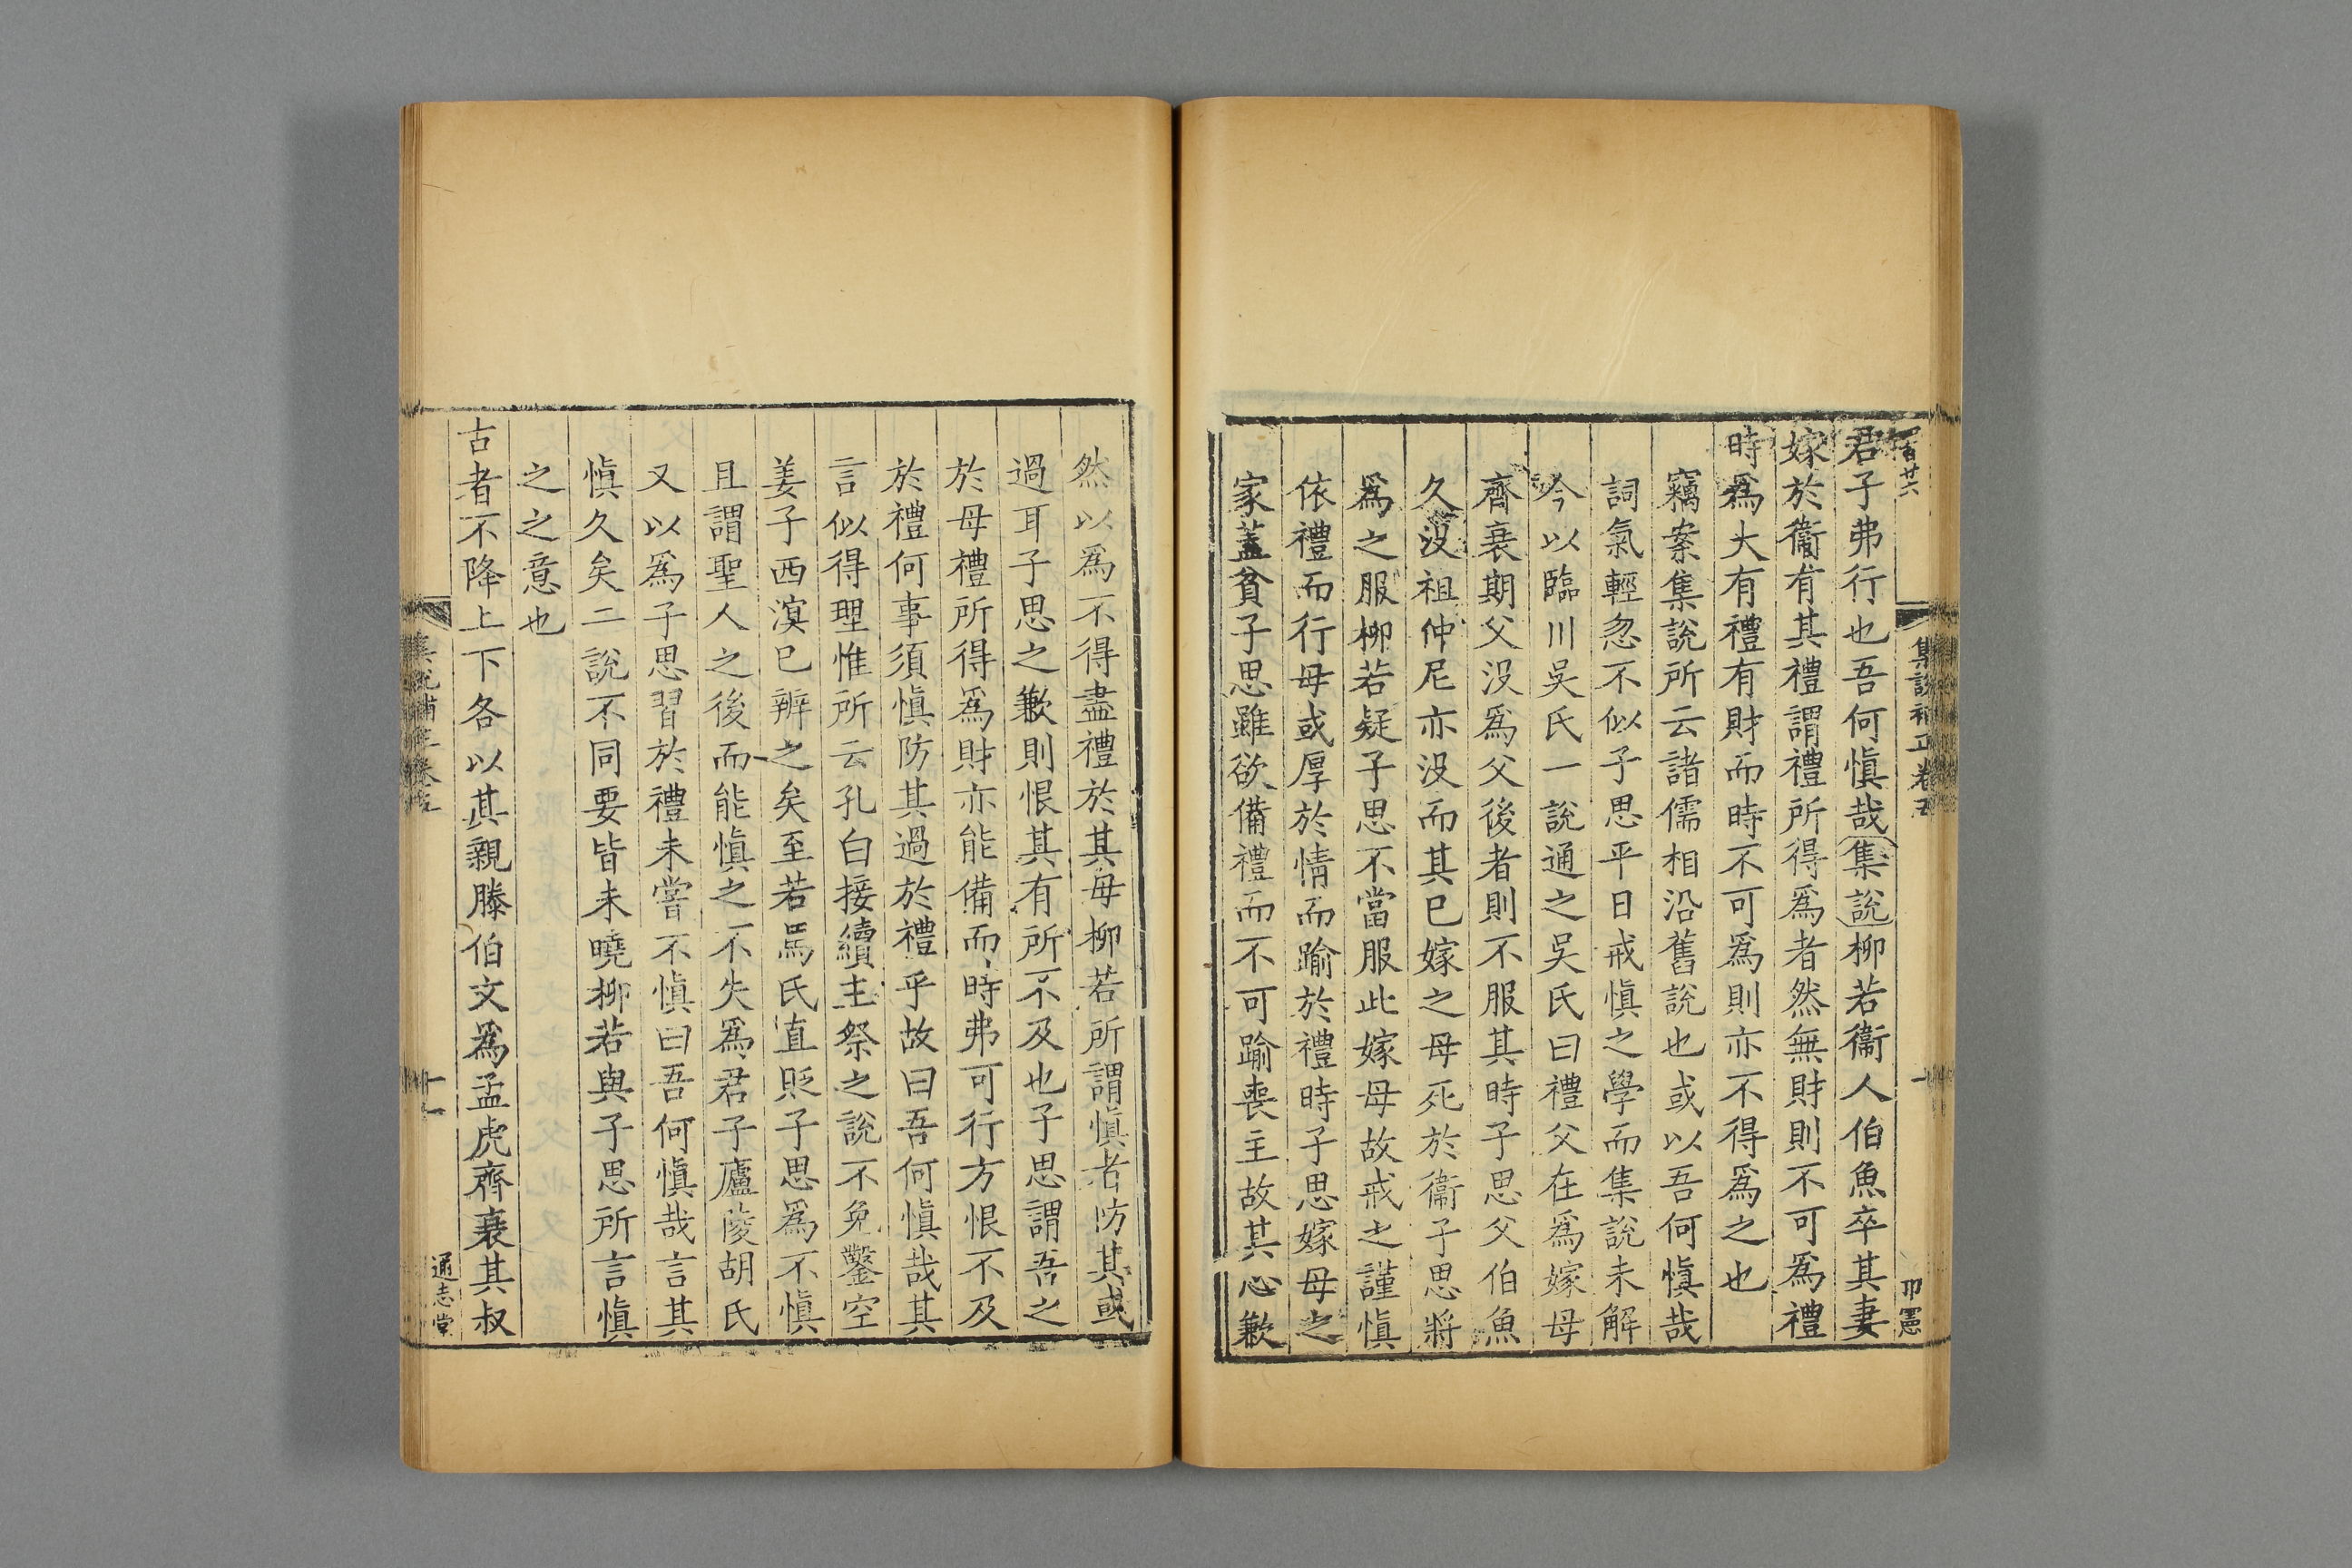 君子弗行也吾何慎哉集說柳若衞人伯魚卒其妻
嫁於衞有其禮謂禮所得爲者然無財則不可爲禮
時爲大有禮有財而時不可爲則亦不得爲之也
竊案集說所云諸儒相沿舊說也或以吾何慎哉
詞氣輕忽不似子思平日戒慎之學而集說未解
今以臨川吳氏一說通之吳氏曰禮父在爲嫁母
齊衰期父没爲父後者則不服其時子思父伯魚
久没祖仲尼亦没而其已嫁之母死於衞子思將
爲之服柳若疑子思不當服此嫁母故戒之謹慎
依禮而行毋或厚於情而踰於禮時子思嫁母之
家蓋貧子思雖欲備禮而不可踰喪主故其心歉
然以爲不得盡禮於其母柳若所謂慎者防其或
過耳子思之歉則恨其有所不及也子思謂吾之
於母禮所得爲財亦能備而時弗可行方恨不及
於禮何事須慎防其過於禮乎故曰吾何慎哉其
言似得理惟所云孔白接續主祭之說不免鑿空
姜子西溟已辨之矣至若馬氏直貶子思爲不慎
且謂聖人之後而能慎之不失爲君子廬陵胡氏
又以爲子思習於禮未嘗不慎曰吾何慎哉言其
慎久矣二說不同要皆未曉柳若與子思所言慎
之之意也
古者不降上下各以其親滕伯文爲孟虎齊衰其叔
集說補正卷五
十一
通志堂